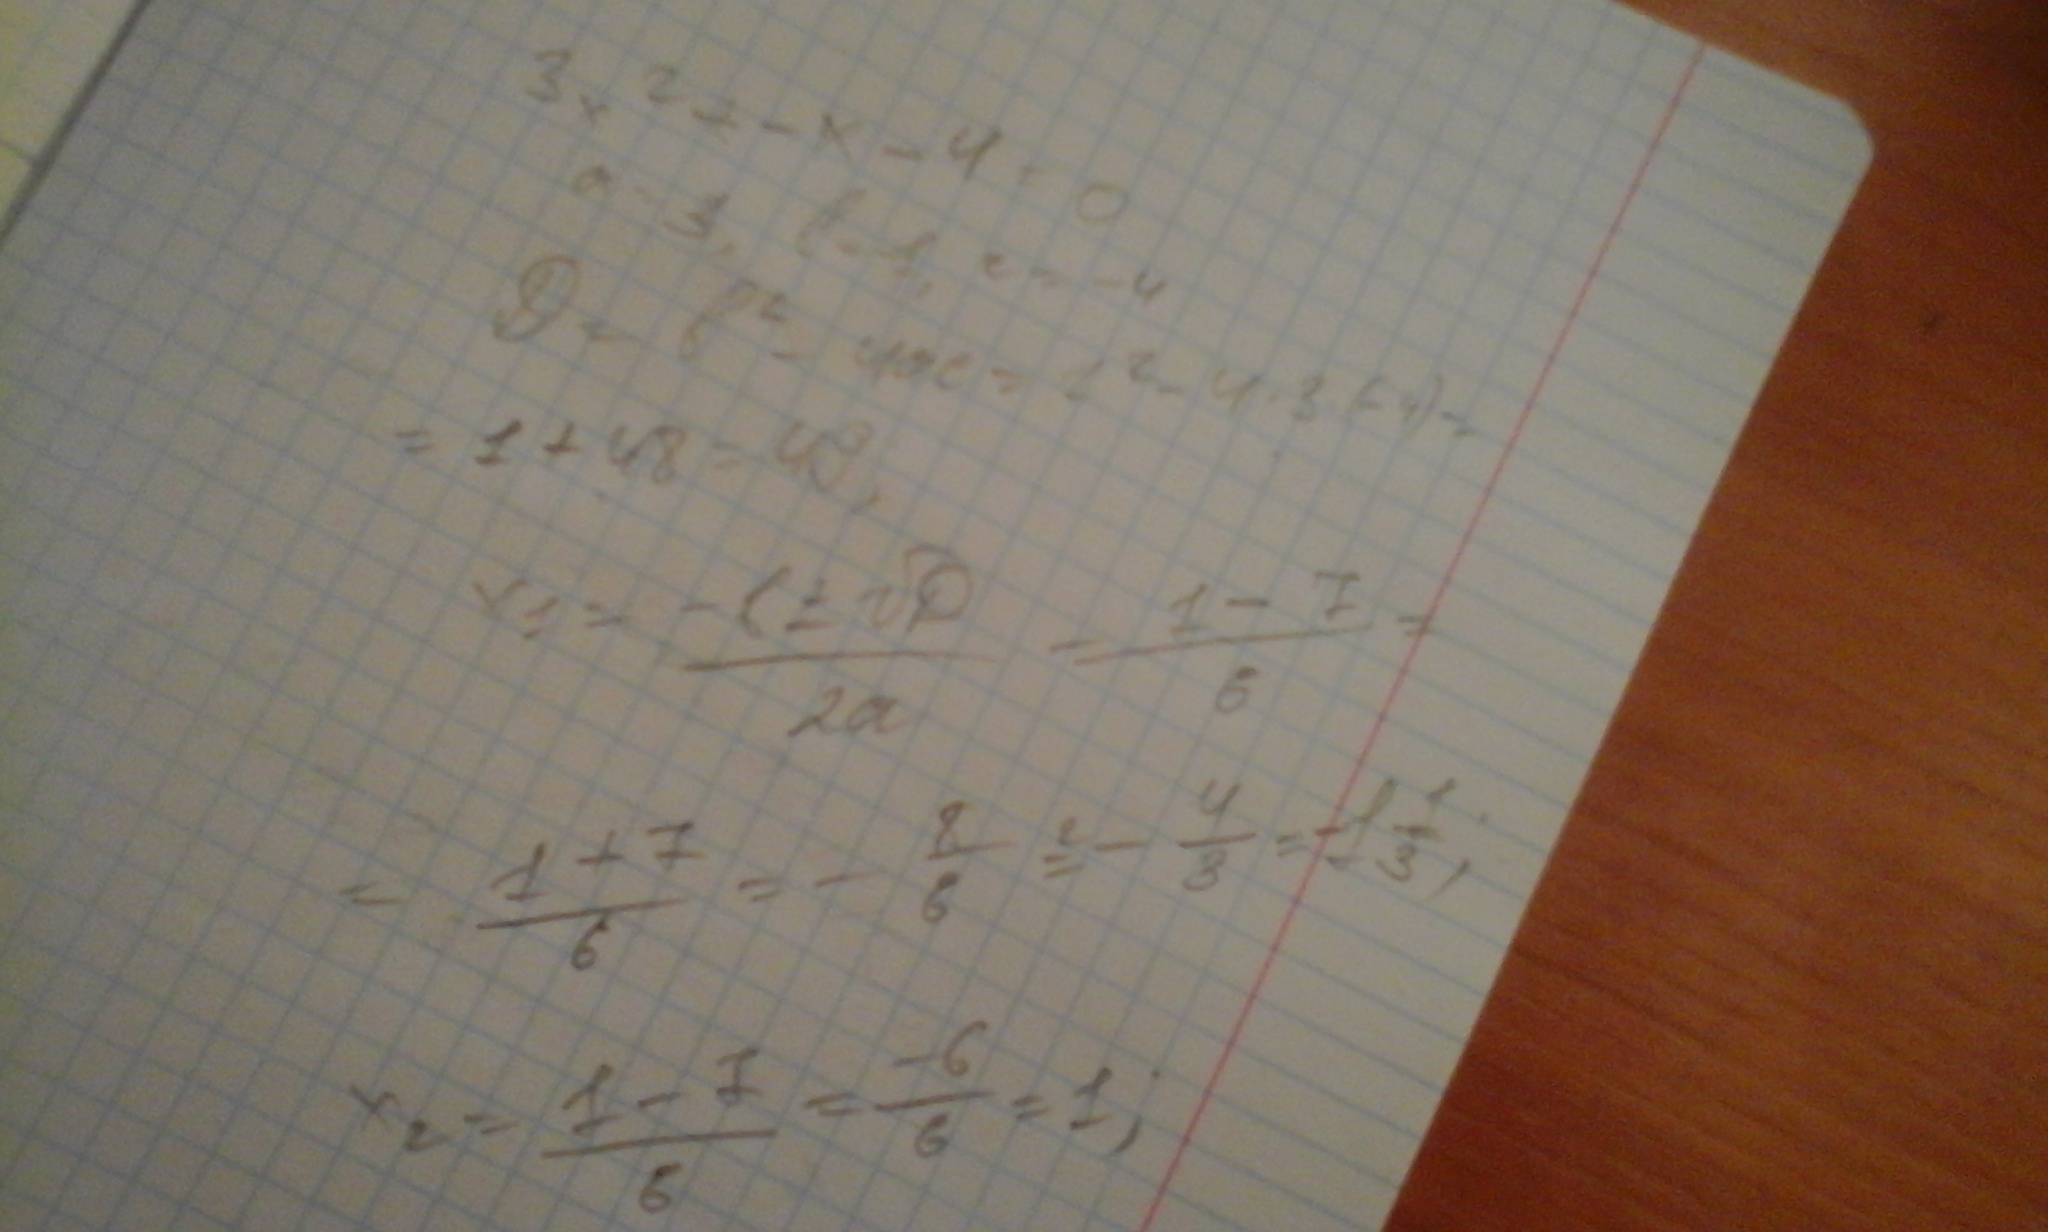 3x² + - x - 4 = 0
a = 3, b = 1, c = -4
D = b² - 4ac = 1² - 4 · 3 · (-4) =
= 1 + 48 = 49,
x₁ = (-b ± √D) / 2a = (1 - 7) / 6 =
= (1 + 7) / 6 = - 8/6 = - 4/3 = -1 1/3;
x₂ = (1 - 7) / 6 = -6/6 = 1;